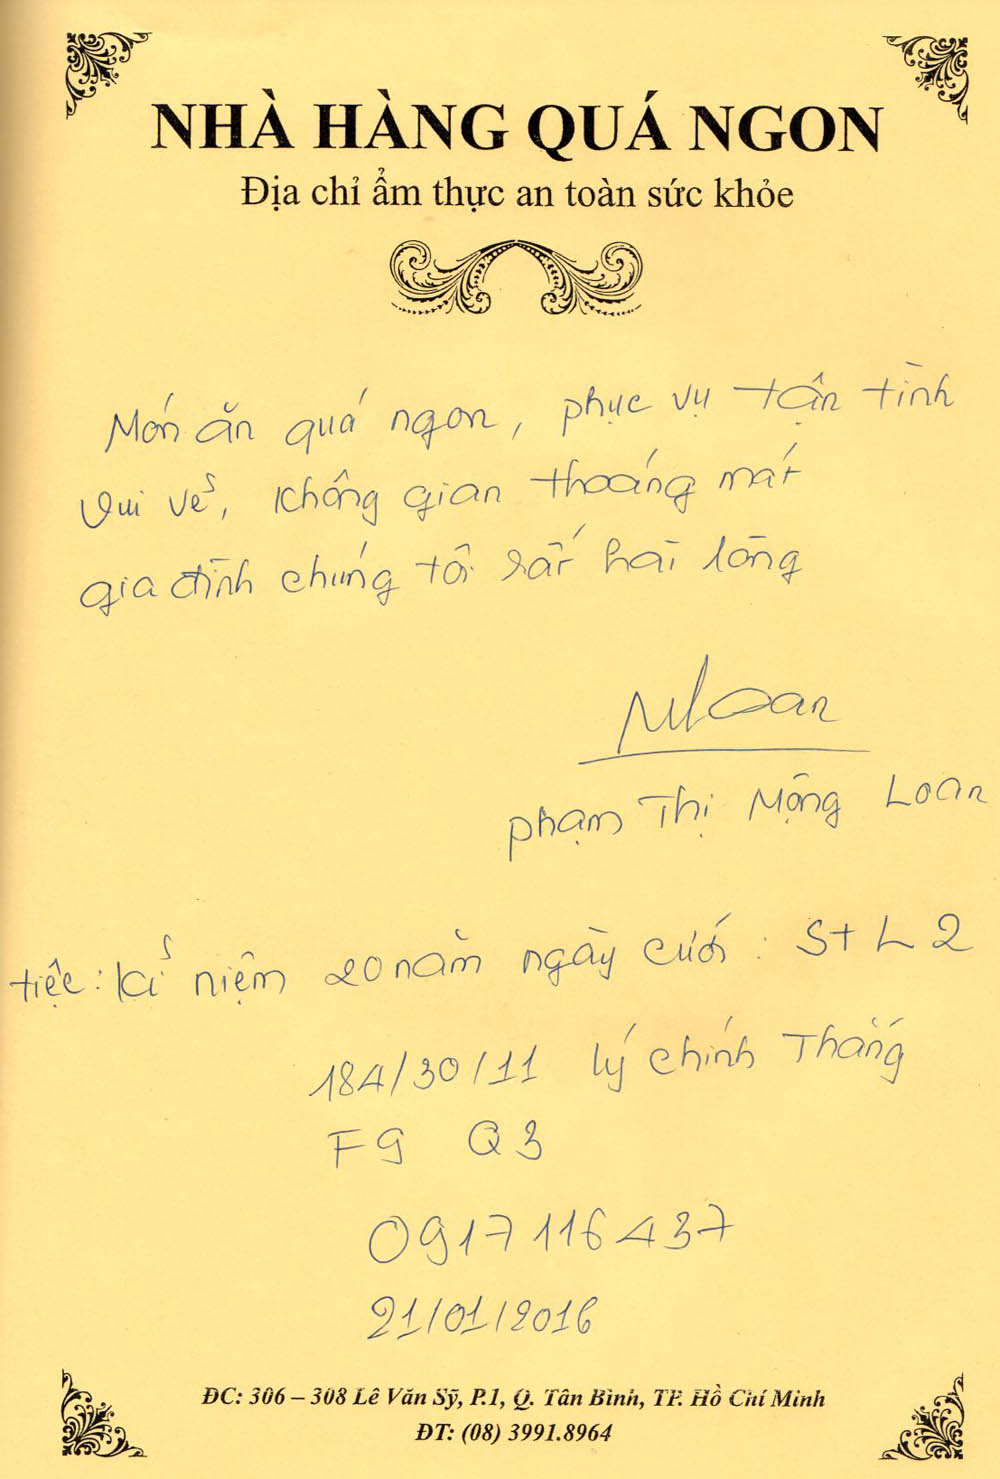 NHÀ HÀNG QUÁ NGON
Địa chỉ ẩm thực an toàn sức khỏe
Món ăn quá ngon, phục vụ tận tình
vui vẻ, không gian thoáng mát
gia đình chúng tôi rất hài lòng
Loan
phạm Thị Mộng Loan
tiệc: kỉ niệm 20 năm ngày cưới: S+L 2
184/30/11 lý chính Thắng
F9 Q3
0917116437
21/01/2016
ĐC: 306 – 308 Lê Văn Sỹ, P.1, Q. Tân Bình, TP. Hồ Chí Minh
ĐT: (08) 3991.8964